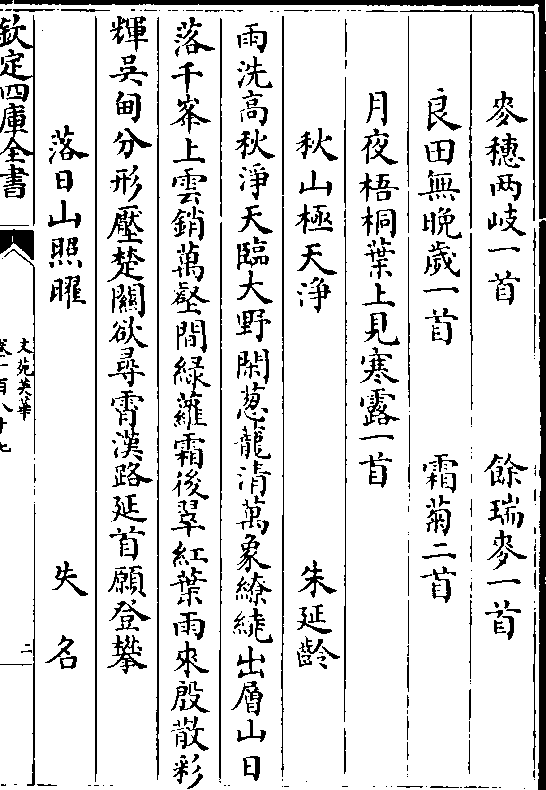 麥穗两岐一首　餘瑞麥一首
良田無晚歲一首　霜菊二首
月夜梧桐葉上見寒露一首
秋山極天淨　朱延齡
雨洗高秋淨天臨大野閑葱蘢清萬象繚繞出層山日
落千峯上雲銷萬壑間綠蘿霜後翠紅葉雨來殷散彩
輝吳甸分形壓楚關欲尋霄漢路延首願登攀
落日山照曜　失名
欽定四庫全書
文苑英華
卷一百八十七
二